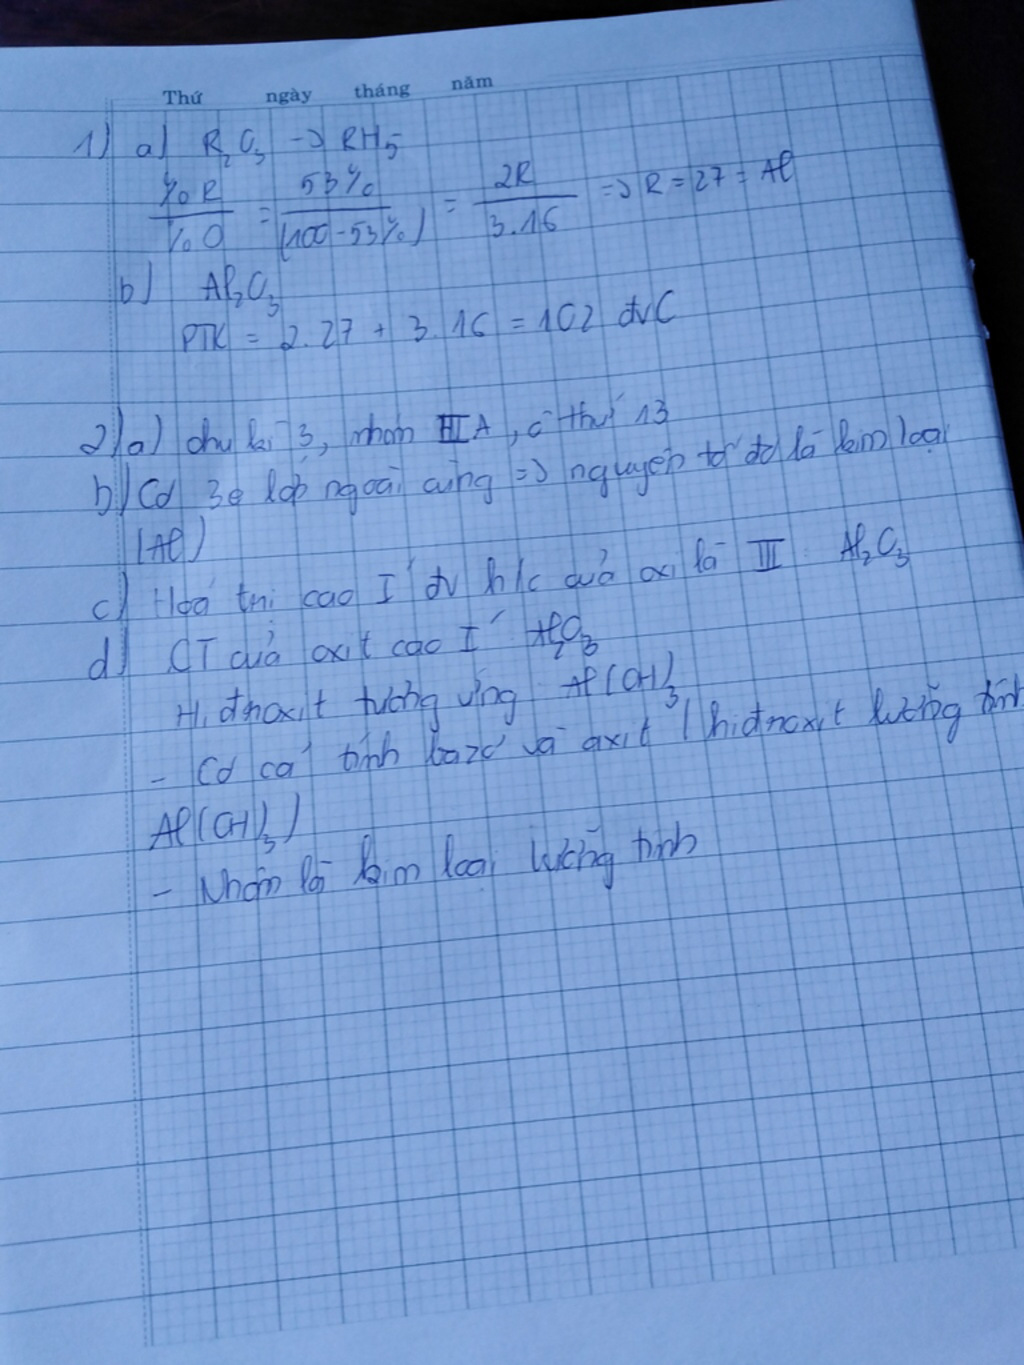 Thứ ngày tháng năm
1) a) R₂O₃ -> RH₅
%R / %O = 53% / (100-53%) = 2R / 3.16 => R = 27 = Al
b) Al₂O₃
PTK = 2.27 + 3.16 = 102 đvC
2) a) chu kì 3, nhóm IIIA, ô thứ 13
b) Có 3e lớp ngoài cùng => nguyên tố đó là kim loại
(Al)
c) Hoá trị cao I' đv h/c của oxi là III Al₂O₃
d) CT của oxit cao I' Al₂O₃
Hiđroxit tương ứng Al(OH)₃
- Có cả tính bazơ và axit (hiđroxit lưỡng tính
Al(OH)₃)
- Nhôm là kim loại lưỡng tính